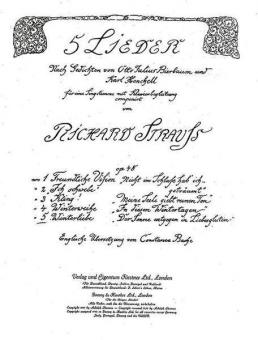 5 LIEDER
Nach Gedichten von Otto Julius Bierbaum und
Karl Henckell
für eine Singstimme mit Klavierbegleitung
componirt
von
RICHARD STRAUSS
op. 48
1 Freundliche Vision "Nicht im Schlafe hab ich
geträumt"
2 Ich schwebe
3 Kling! "Meine Seele gibt reinen Ton"
4 Winterweihe "In diesen Wintertagen"
5 Winterliebe "Der Sonne entgegen in Liebesgluten"
Englische Übersetzung von Constance Bache
Verlag und Eigentum Fürstner Ltd., London
Boosey & Hawkes Ltd., London